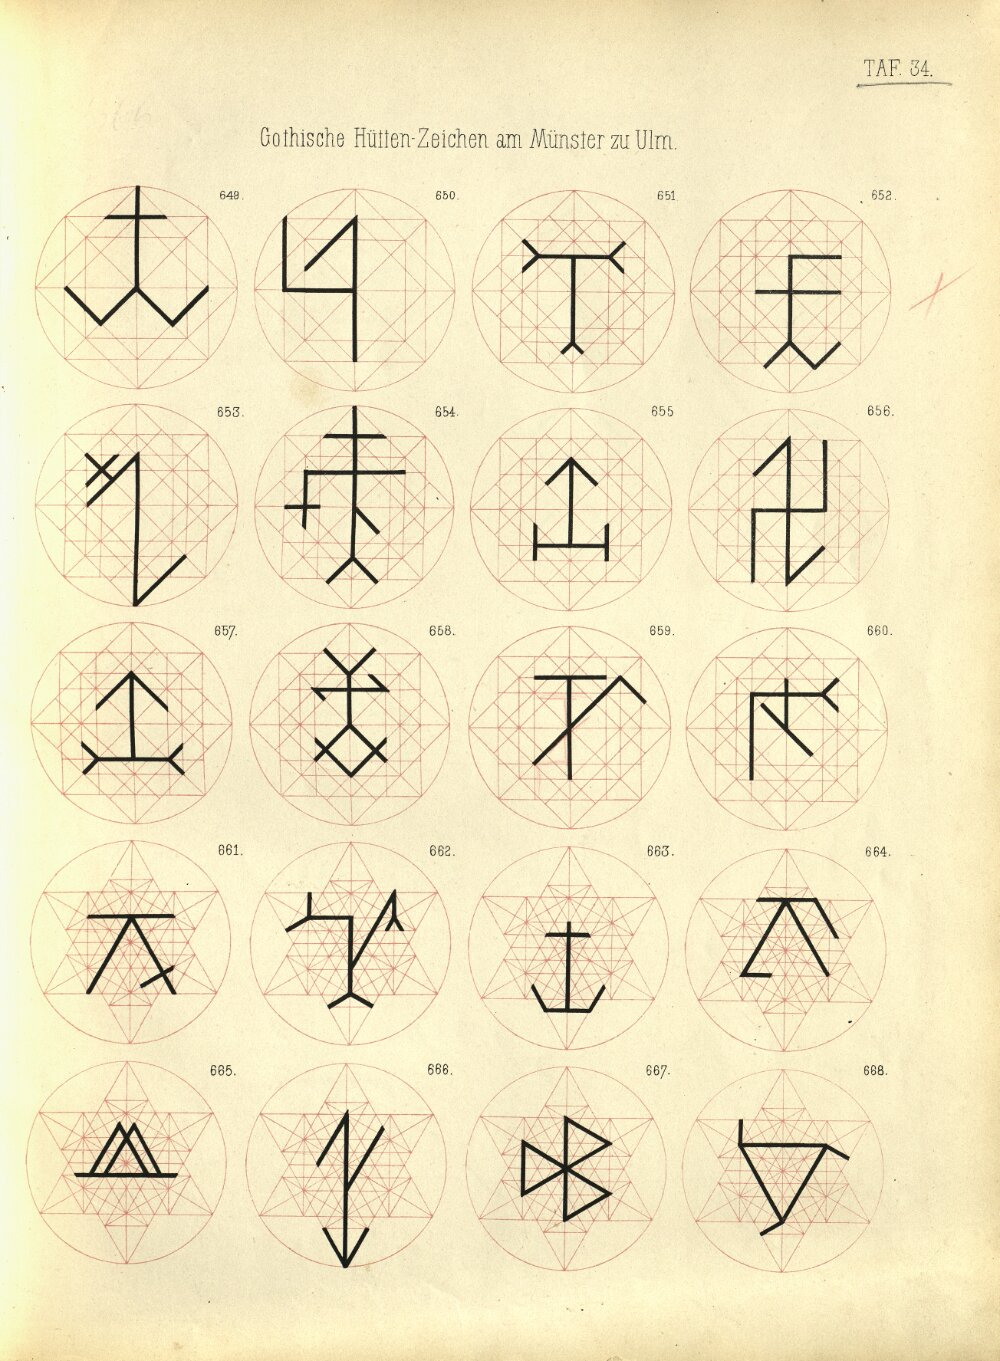 TAF. 34.
Gothische Hütten-Zeichen am Münster zu Ulm.
649. 650. 651. 652.
653. 654. 655 656.
657. 658. 659. 660.
661. 662. 663. 664.
665. 666. 667. 668.